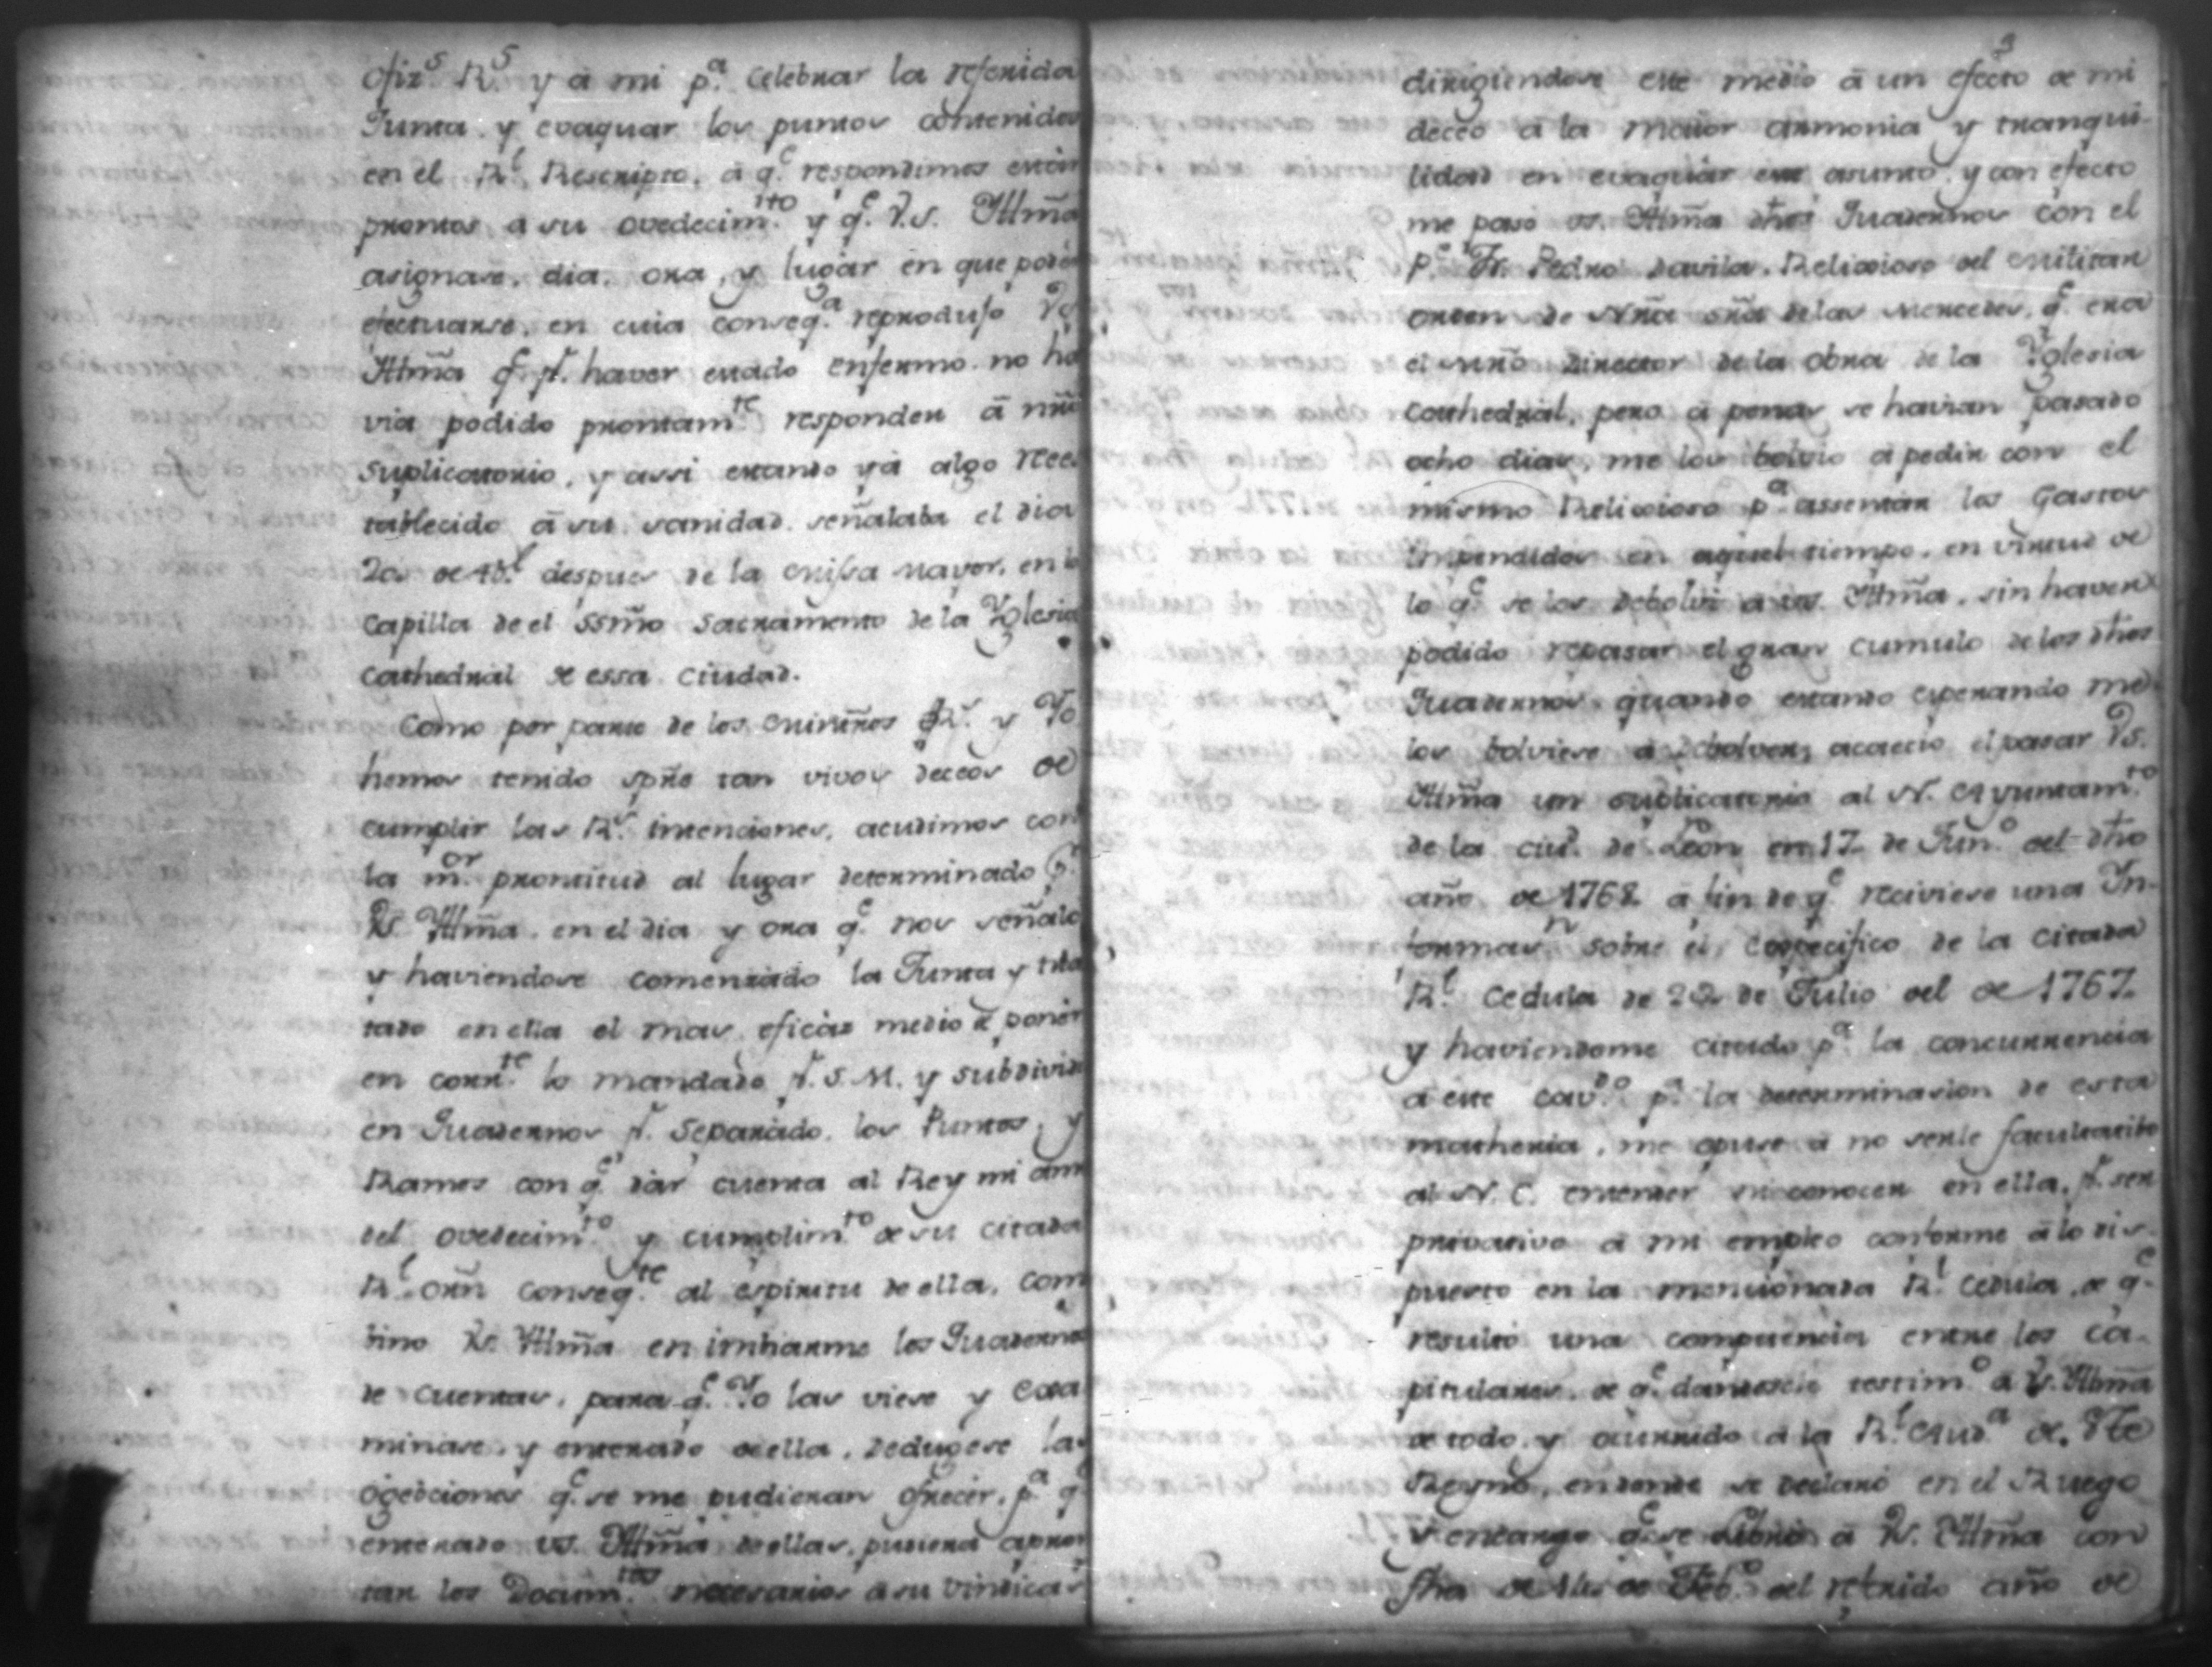 ofiz.s R.s y á mi p.a celebrar la referida
Junta y evaquar los puntos contenidos
en el R.l Rescripto, á q.e respondimos estár
promtos a su ovedecim.to y q.e V.S. Illmã
asignase, dia, ora, y lugár en que podér
efectuarse, en cuia conseq.a reprodujo Vs
Illmã q.e p.r haver estado enfermo no ha
via podido promtam.te responder á nrõ
suplicatorio, y assi estando yá algo rees
tablecido á su sanidad señalaba el dia
20 de Ab.l despues de la Missa mayor, en la
Capilla de el SSmõ Sacramento de la Yglesia
Cathedral de essa Ciudad.
Como por parte de los Miniños R.s y Yo
hemos tenido spre tan vivos deceos de
cumplir las R.s intenciones, acudimos con
la m.or promtitud al lugar determinado p.r
Vs. Illmã en el dia y ora q.e nos señalo
y haviendose comenzado la Junta y tra
tado en ella el mas eficáz medio de ponér
en corr.te lo mandado p.r S.M. y subdivid
en Quadernos p.r separado los Puntos, y
Ramos con q.e dár cuenta al Rey mi amo
del ovedecim.to y cumplim.to de su citada
R.l orñ conseq.te al espiritu de ella, com
bino Vs. Illmã en imbiarme los Quadernos
de cuentas, para q.e Yo las viese y exa
minase, y enterado de ella, dedugese las
ogecciones q.e se me pudieran ofrecér, p.a q.e
enterado vs. Illmã de ellas, pudiera apron
tar los Docum.tos necesarios á su vindicas
9
dirigiendose este medio á un efecto de mi
deceo á la maior armonia y tranqui-
lidad en evaquár este asunto, y con efecto
me paso vs. Illmã dhos Quadernos con el
P.e Fr. Pedro Davila, Religioso del Militar
orden de Nrã Srã de las Mercedes, q.e era
el Mrõ Director de la obra de la Yglesia
Cathedral, pero á penas se havian pasado
ocho dias, me los bolvio á pedir con el
mismo Religioso p.a assentár los Gastos
impendidos en aquel tiempo, en virtud de
lo q.e se los debolvi á vs. Illmã, sin haver
podido repasar el gran cumulo de los dhos
Quadernos quando estando esperando me
los bolviese á debolver, acaecio el pasar Vs.
Illmã un suplicatorio al N. Ayuntam.to
de la ciu.d de Leon en 17 de Jun.o del dho
año de 1768 á fin de q.e reciviese una In-
formas.n sobre el especifico de la citada
R.l Cedula de 22 de Julio del de 1767
y haviendome citado p.a la concurrencia
á este cav.do p.a la determinasion de esta
matheria, me opuse á no serle facultatibo
al N. C. entender ni conocer en ella, p.r ser
privativo á mi empleo conforme á lo dis-
puesto en la mencionada R.l Cedula, de q.e
resultó una competencia entre los Ca-
pitulares, de q.e dandosele testim.o á Vs. Illmã
de todo, y ocurrido á la R.l Aud.a de Ste
Reyno, en donde se declaró en el Ruego
y encargo q.e se Libró á Vs. Illmã con
fha de de Feb.o del refrido año de